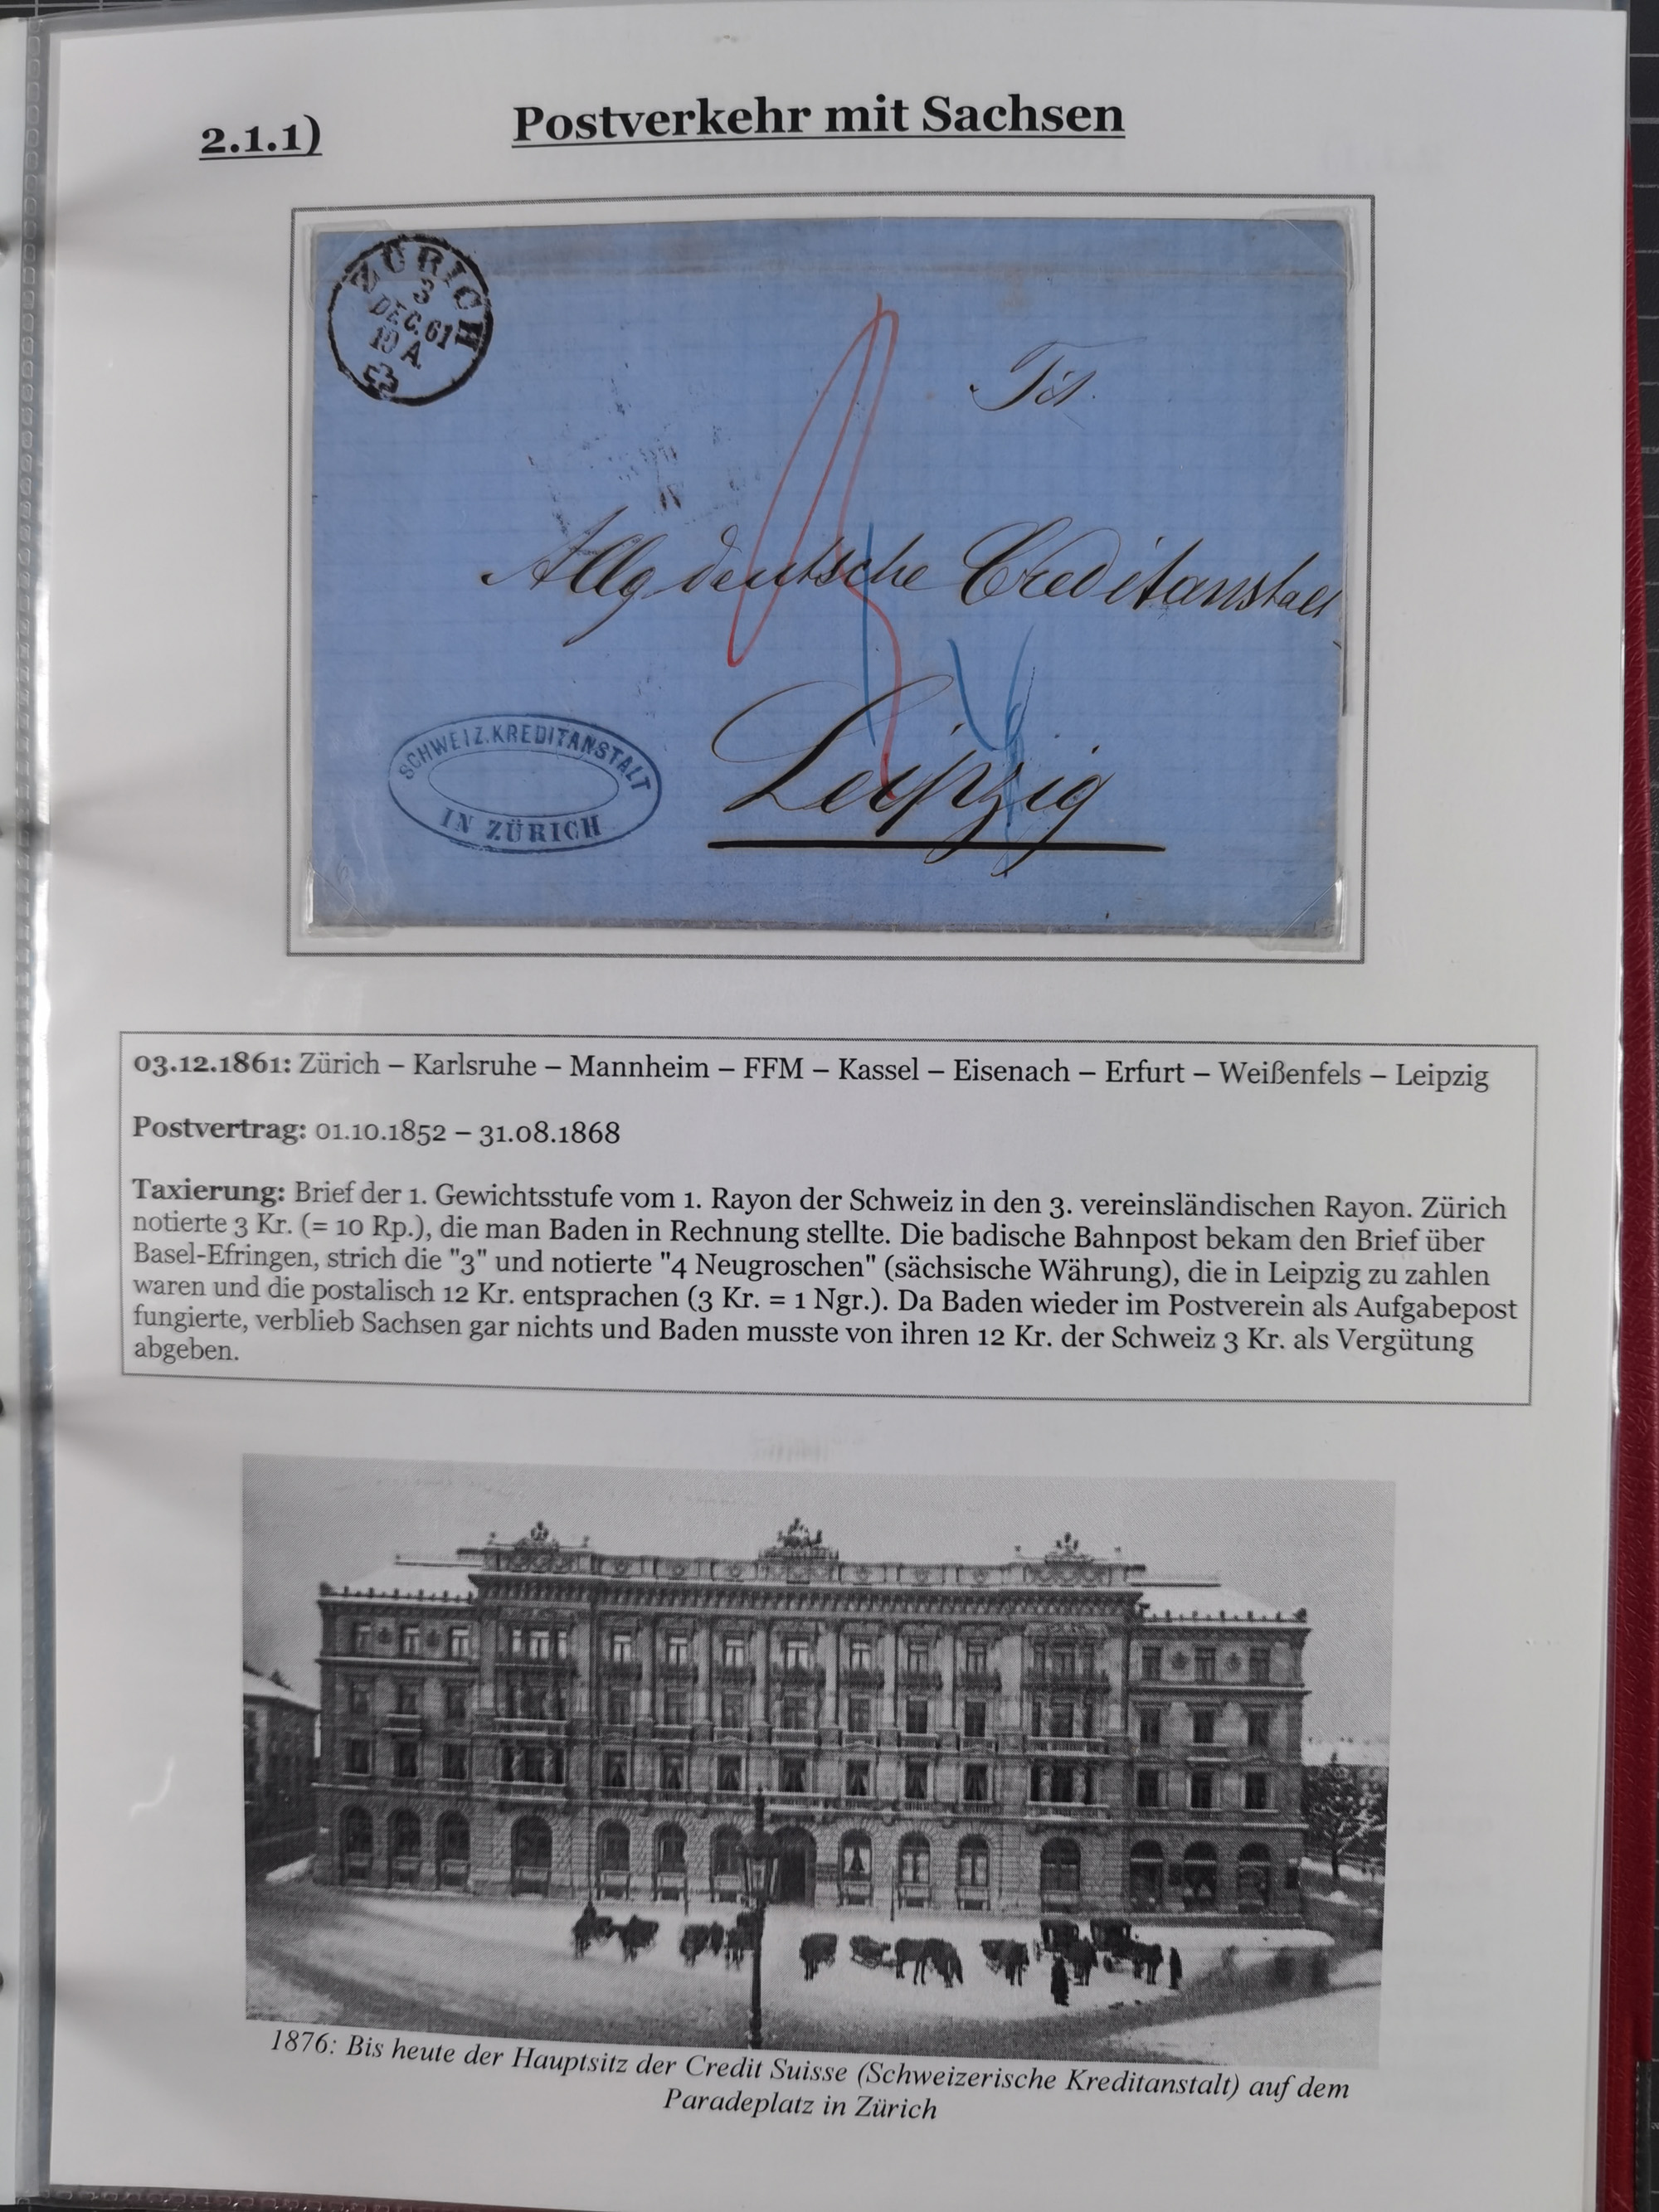 2.1.1) Postverkehr mit Sachsen
ZÜRICH
3
DEC. 61
10 A
Tit.
Allg deutsche Creditanstalt
Leipzig
SCHWEIZ. KREDITANSTALT
IN ZÜRICH
03.12.1861: Zürich – Karlsruhe – Mannheim – FFM – Kassel – Eisenach – Erfurt – Weißenfels – Leipzig
Postvertrag: 01.10.1852 – 31.08.1868
Taxierung: Brief der 1. Gewichtsstufe vom 1. Rayon der Schweiz in den 3. vereinsländischen Rayon. Zürich
notierte 3 Kr. (= 10 Rp.), die man Baden in Rechnung stellte. Die badische Bahnpost bekam den Brief über
Basel-Efringen, strich die "3" und notierte "4 Neugroschen" (sächsische Währung), die in Leipzig zu zahlen
waren und die postalisch 12 Kr. entsprachen (3 Kr. = 1 Ngr.). Da Baden wieder im Postverein als Aufgabepost
fungierte, verblieb Sachsen gar nichts und Baden musste von ihren 12 Kr. der Schweiz 3 Kr. als Vergütung
abgeben.
1876: Bis heute der Hauptsitz der Credit Suisse (Schweizerische Kreditanstalt) auf dem
Paradeplatz in Zürich